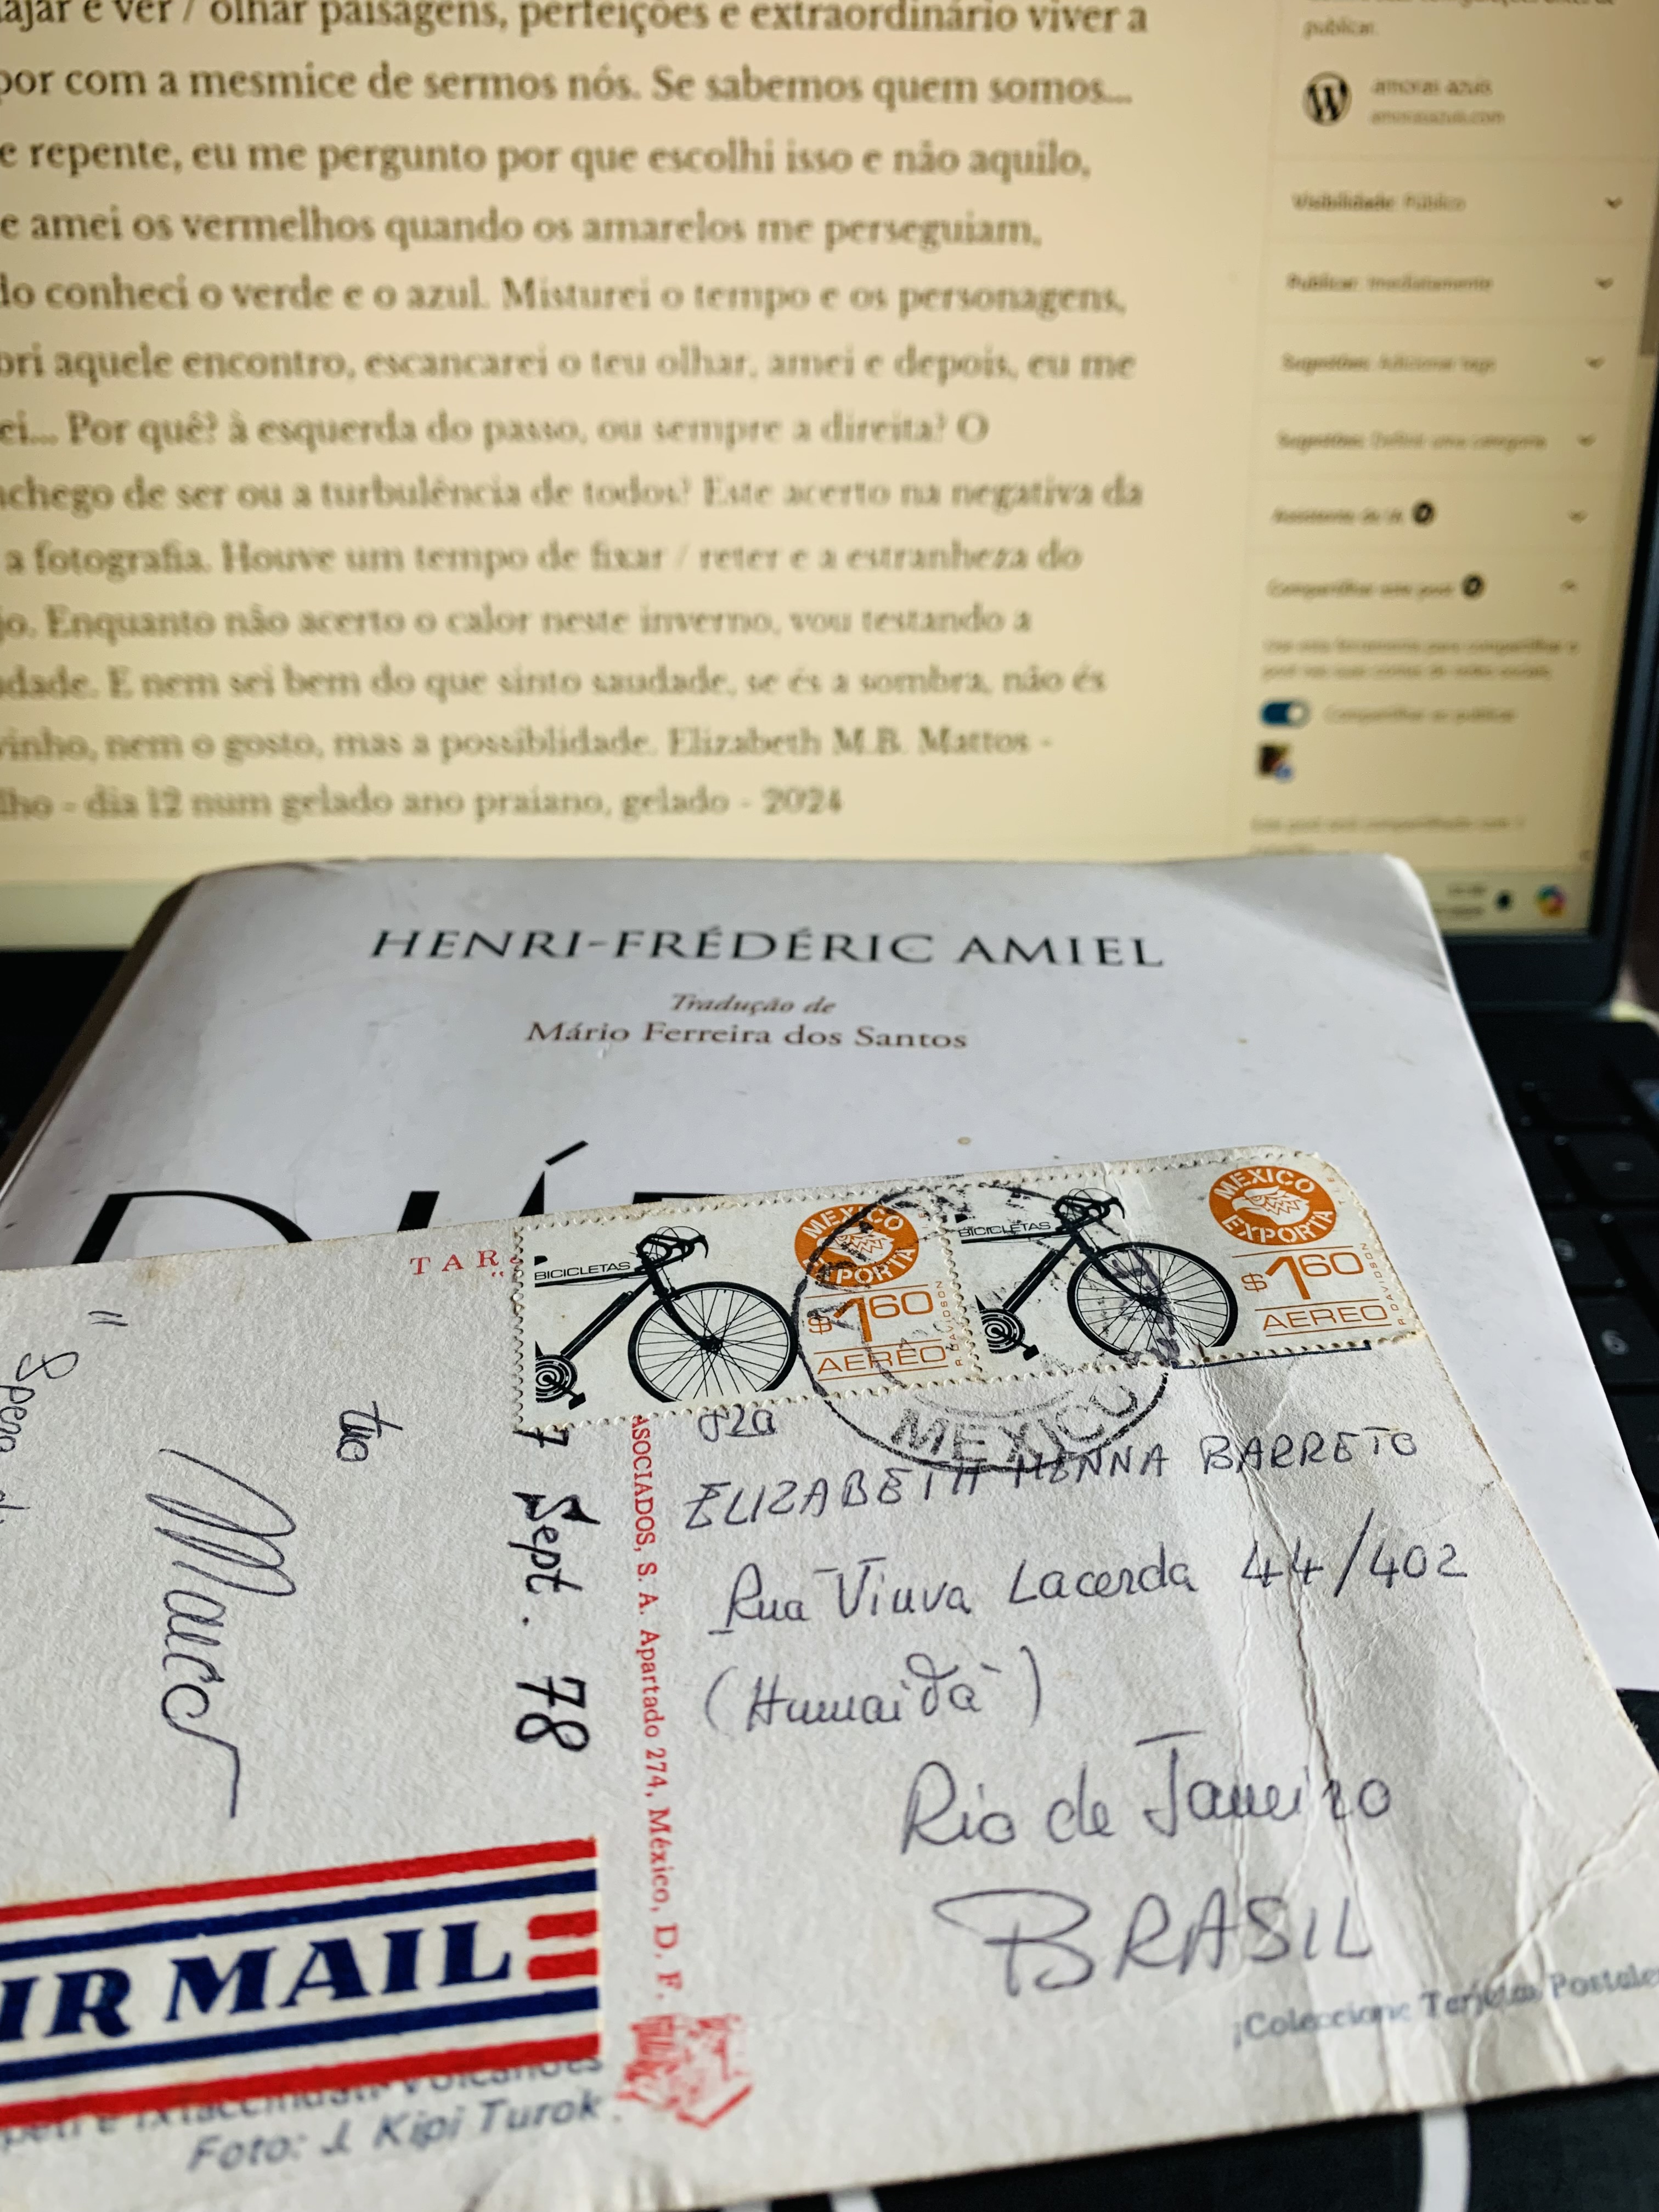 ajar e ver / olhar paisagens, perfeições e extraordinário viver a
por com a mesmice de sermos nós. Se sabemos quem somos...
e repente, eu me pergunto por que escolhi isso e não aquilo,
e amei os vermelhos quando os amarelos me perseguiam,
do conheci o verde e o azul. Misturei o tempo e os personagens,
bri aquele encontro, escancarei o teu olhar, amei e depois, eu me
ei... Por quê? à esquerda do passo, ou sempre a direita? O
achego de ser ou a turbulência de todos? Este acerto na negativa da
a fotografia. Houve um tempo de fixar / reter e a estranheza do
jo. Enquanto não acerto o calor neste inverno, vou testando a
dade. E nem sei bem do que sinto saudade, se és a sombra, não és
vinho, nem o gosto, mas a possiblidade. Elizabeth M.B. Mattos -
lho - dia 12 num gelado ano praiano, gelado - 2024
publicar.
amoras azuis
amorasazuis.com
Visibilidade: Público
Publicar: Imediatamente
Sugestões: Adicionar tags
Sugestões: Definir uma categoria
Assistente de IA
Compartilhar este post
Use esta ferramenta para compartilhar o
post nas suas contas de redes sociais.
Compartilhar ao publicar
HENRI-FRÉDÉRIC AMIEL
Tradução de
Mário Ferreira dos Santos
TAR
BICICLETAS
MEXICO
EXPORTA
$160
AEREO
P. DAVIDSON
BICICLETAS
MEXICO
EXPORTA
$160
AEREO
P. DAVIDSON
MEXICO
tuo
Marco
7 Sept. 78
ASOCIADOS, S. A. Apartado 274, México, D. F.
ELIZABETH MENNA BARRETO
Rua Viuva Lacerda 44/402
(Humaità)
Rio de Janeiro
BRASIL
IR MAIL
Foto: J. Kipi Turok.
¡Coleccione Tarjetas Postales
6